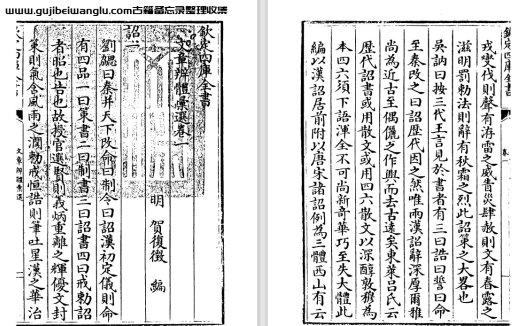 www.gujibeiwanglu.com古籍备忘录整理收集
欽定四庫全書
文章辨體彙選卷一
明 賀復徵 編
詔一
劉勰曰秦并天下改命曰制令曰詔漢初定儀則命
有四品一曰策書二曰制書三曰詔書四曰戒勅詔
者昭也告也故授官選賢則義炳重離之輝優文封
策則氣含風雨之潤勅戒恒誥則筆吐星漢之華治
文章辨體彙選
欽定四庫全書
卷一
戎燮伐則聲有洊雷之威眚災肆赦則文有春露之
滋明罰勅法則辭有秋霜之烈此詔策之大畧也
吳訥曰按三代王言見於書者有三曰誥曰誓曰命
至秦改之曰詔歷代因之然唯兩漢詔辭深厚爾雅
尚為近古至偶儷之作興而去古遠矣東萊呂氏云
歷代詔書或用散文或用四六散文以深醇敦穆為
本四六須下語渾全不可尚新奇華巧至失大體此
編以漢詔居前附以唐宋諸詔例為三體西山有云